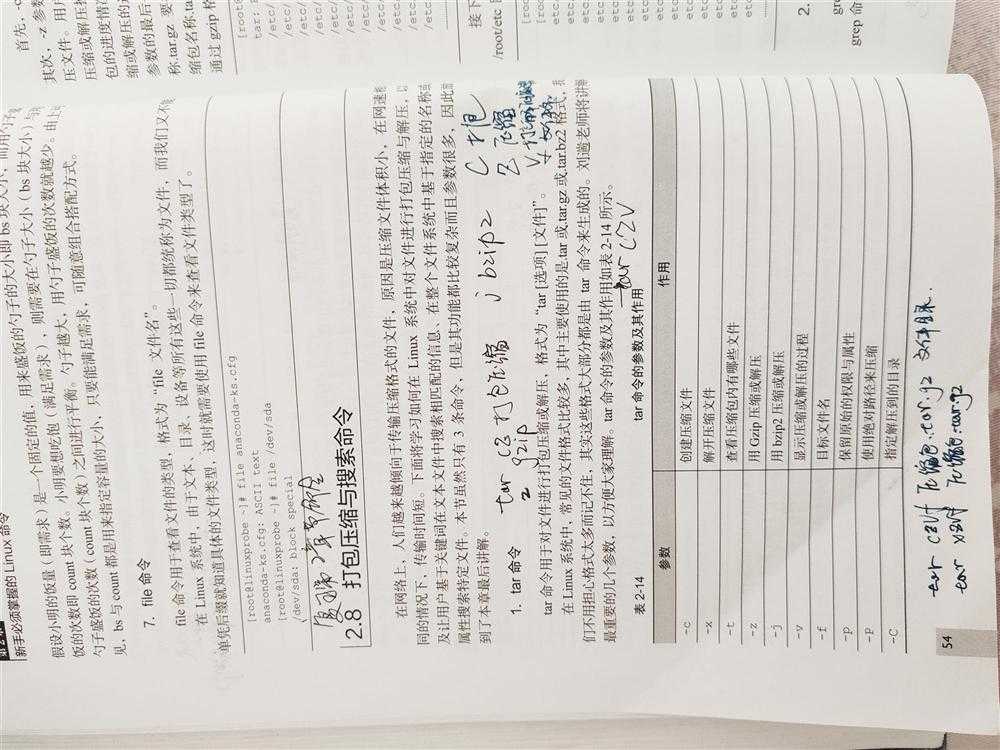 新手必须掌握的 Linux 命令
假设小明的饭量（即需求）是一个固定的值，用来盛饭的勺子的大小即 bs 块大小，而用勺子
饭的次数即 count 块个数。小明要想吃饱（满足需求），则需要在勺子大小（bs 块大小）
勺子盛饭的次数（count 块个数）之间进行平衡。勺子越大，用勺子盛饭的次数就越少。由上
见，bs 与 count 都是用来指定容量的大小，只要能满足需求，可随意组合搭配方式。
7. file 命令
file 命令用于查看文件的类型，格式为“file 文件名”。
在 Linux 系统中，由于文本、目录、设备等所有这些一切都统称为文件，而我们又不
单凭后缀就知道具体的文件类型，这时就需要使用 file 命令来查看文件类型了。
[root@linuxprobe ~]# file anaconda-ks.cfg
anaconda-ks.cfg: ASCII text
[root@linuxprobe ~]# file /dev/sda
/dev/sda: block special
2.8 打包压缩与搜索命令
在网络上，人们越来越倾向于传输压缩格式的文件，原因是压缩文件体积小，在网速
同的情况下，传输时间短。下面将学习如何在 Linux 系统中对文件进行打包压缩与解压，
及让用户基于关键词在文本文件中搜索相匹配的信息、在整个文件系统中基于指定的名称或
属性搜索特定文件。本节虽然只有 3 条命令，但是其功能都比较复杂而且参数很多，因此
到了本章最后讲解。
tar cz 打包压缩 j bzip2
z gzip
C 打包
Z 压缩
1. tar 命令
tar 命令用于对文件进行打包压缩或解压，格式为“tar [选项] [文件]”。
在 Linux 系统中，常见的文件格式比较多，其中主要使用的是.tar 或.tar.gz 或.tar.bz2 格式，
们不用担心格式太多而记不住，其实这些格式大部分都是由 tar 命令来生成的。刘遄老师将讲解
最重要的几个参数，以方便大家理解。tar 命令的参数及其作用如表 2-14 所示。
tar CZV
表 2-14 tar 命令的参数及其作用
参数 作用
-c 创建压缩文件
-x 解开压缩文件
-t 查看压缩包内有哪些文件
-z 用 Gzip 压缩或解压
-j 用 bzip2 压缩或解压
-v 显示压缩或解压的过程
-f 目标文件名
-p 保留原始的权限与属性
-P 使用绝对路径来压缩
-C 指定解压到的目录
54
tar czvf 压缩包.tar.gz
tar xzvf 压缩包.tar.gz
首先，
其次，-z 参数
压文件。用户
压缩或解压
包的进度情况
缩或解压的
参数的最后
称.tar.gz 要
缩包名称.ta
通过 gzip 格
[root
tar:
/etc/
/etc/
/etc/
/etc/
接下
/root/etc
[root
etc
etc
etc
2.
grep 命